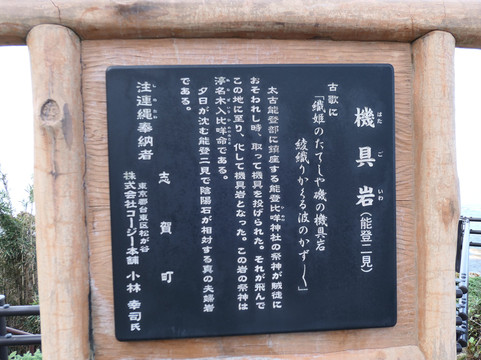 機具岩(能登二見)
はたごいわ
古歌に
「織姫のたてしや磯の機具岩
綾織りかえる波のかず〱」
太古能登部に鎮座する能登比咩神社の祭神が賊徒に
おそわれし時、取って機具を投げられた。それが飛んで
この地に至り、化して機具岩となった。この岩の祭神は
渟名木入比咩命である。
夕日が沈む能登二見で陰陽石が相対する真の夫婦岩
である。
志賀町
注連縄奉納者
しめなわ
東京都台東区松が谷
株式会社コージー本舗 小林 幸司氏